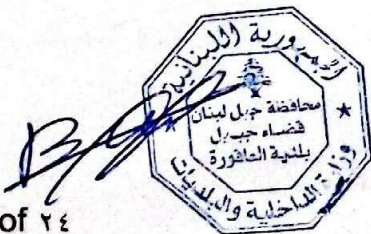 الجمهورية اللبنانية
محافظة جبل لبنان
قضاء جبيل
بلدية العاقورة
وزارة الداخلية والبلديات
of ٢٤